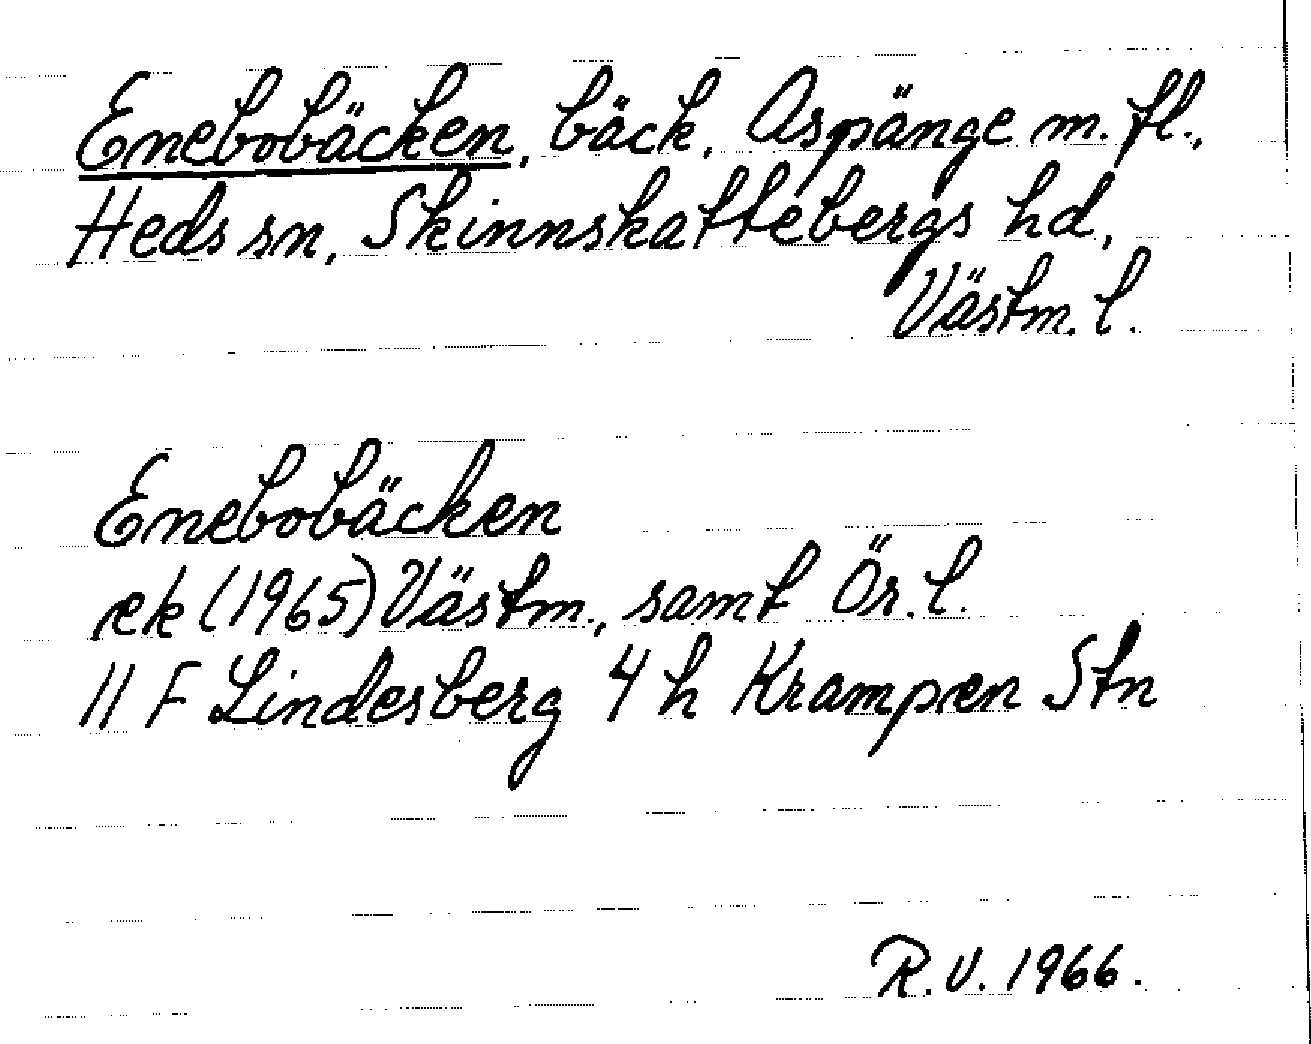 Enebobäcken, bäck, Aspänge m. fl.,
Heds sn, Skinnskattebergs hd,
Västm. l.
Enebobäcken
ek (1965) Västm., samt Ör. l.
11 F Lindesberg 4 h Krampen Stn
R.V. 1966.